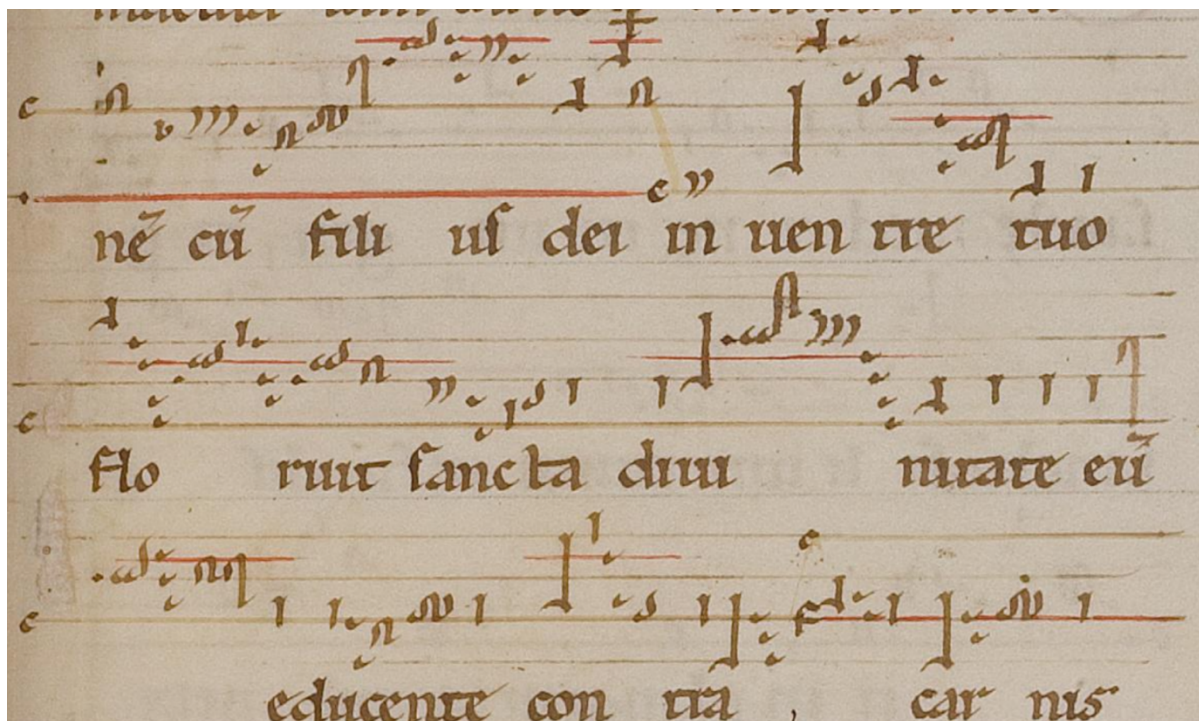 nē cū filii us dei in uen tre tuo
flo ruit sancta diui nitate eū
educente con tra car nis